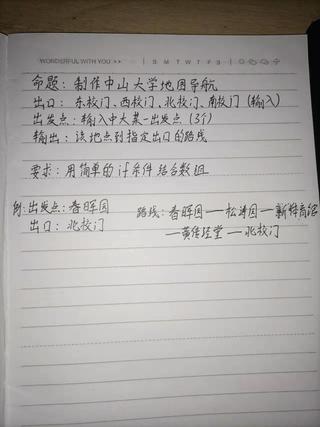 WONDERFUL WITH YOU >> S M T W T F S
命题：制作中山大学地图导航
出口：东校门、西校门、北校门、南校门（输入）
出发点：输入中大某一出发点（3个）
输出：该地点到指定出口的路线
要求：用简单的if条件结合数组
例：出发点：春晖园 路线：春晖园——松涛园——
出口：北校门 —黄传经堂—北校门